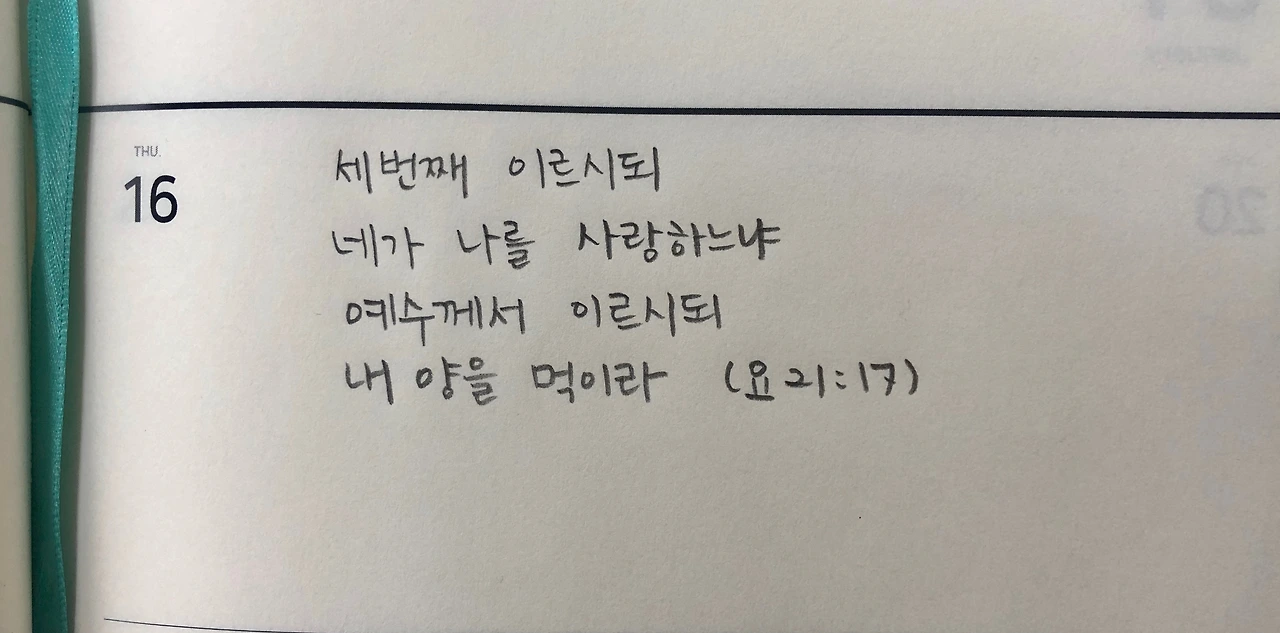 THU.
16
세번째 이르시되
네가 나를 사랑하느냐
예수께서 이르시되
내 양을 먹이라 (요 21:17)
20